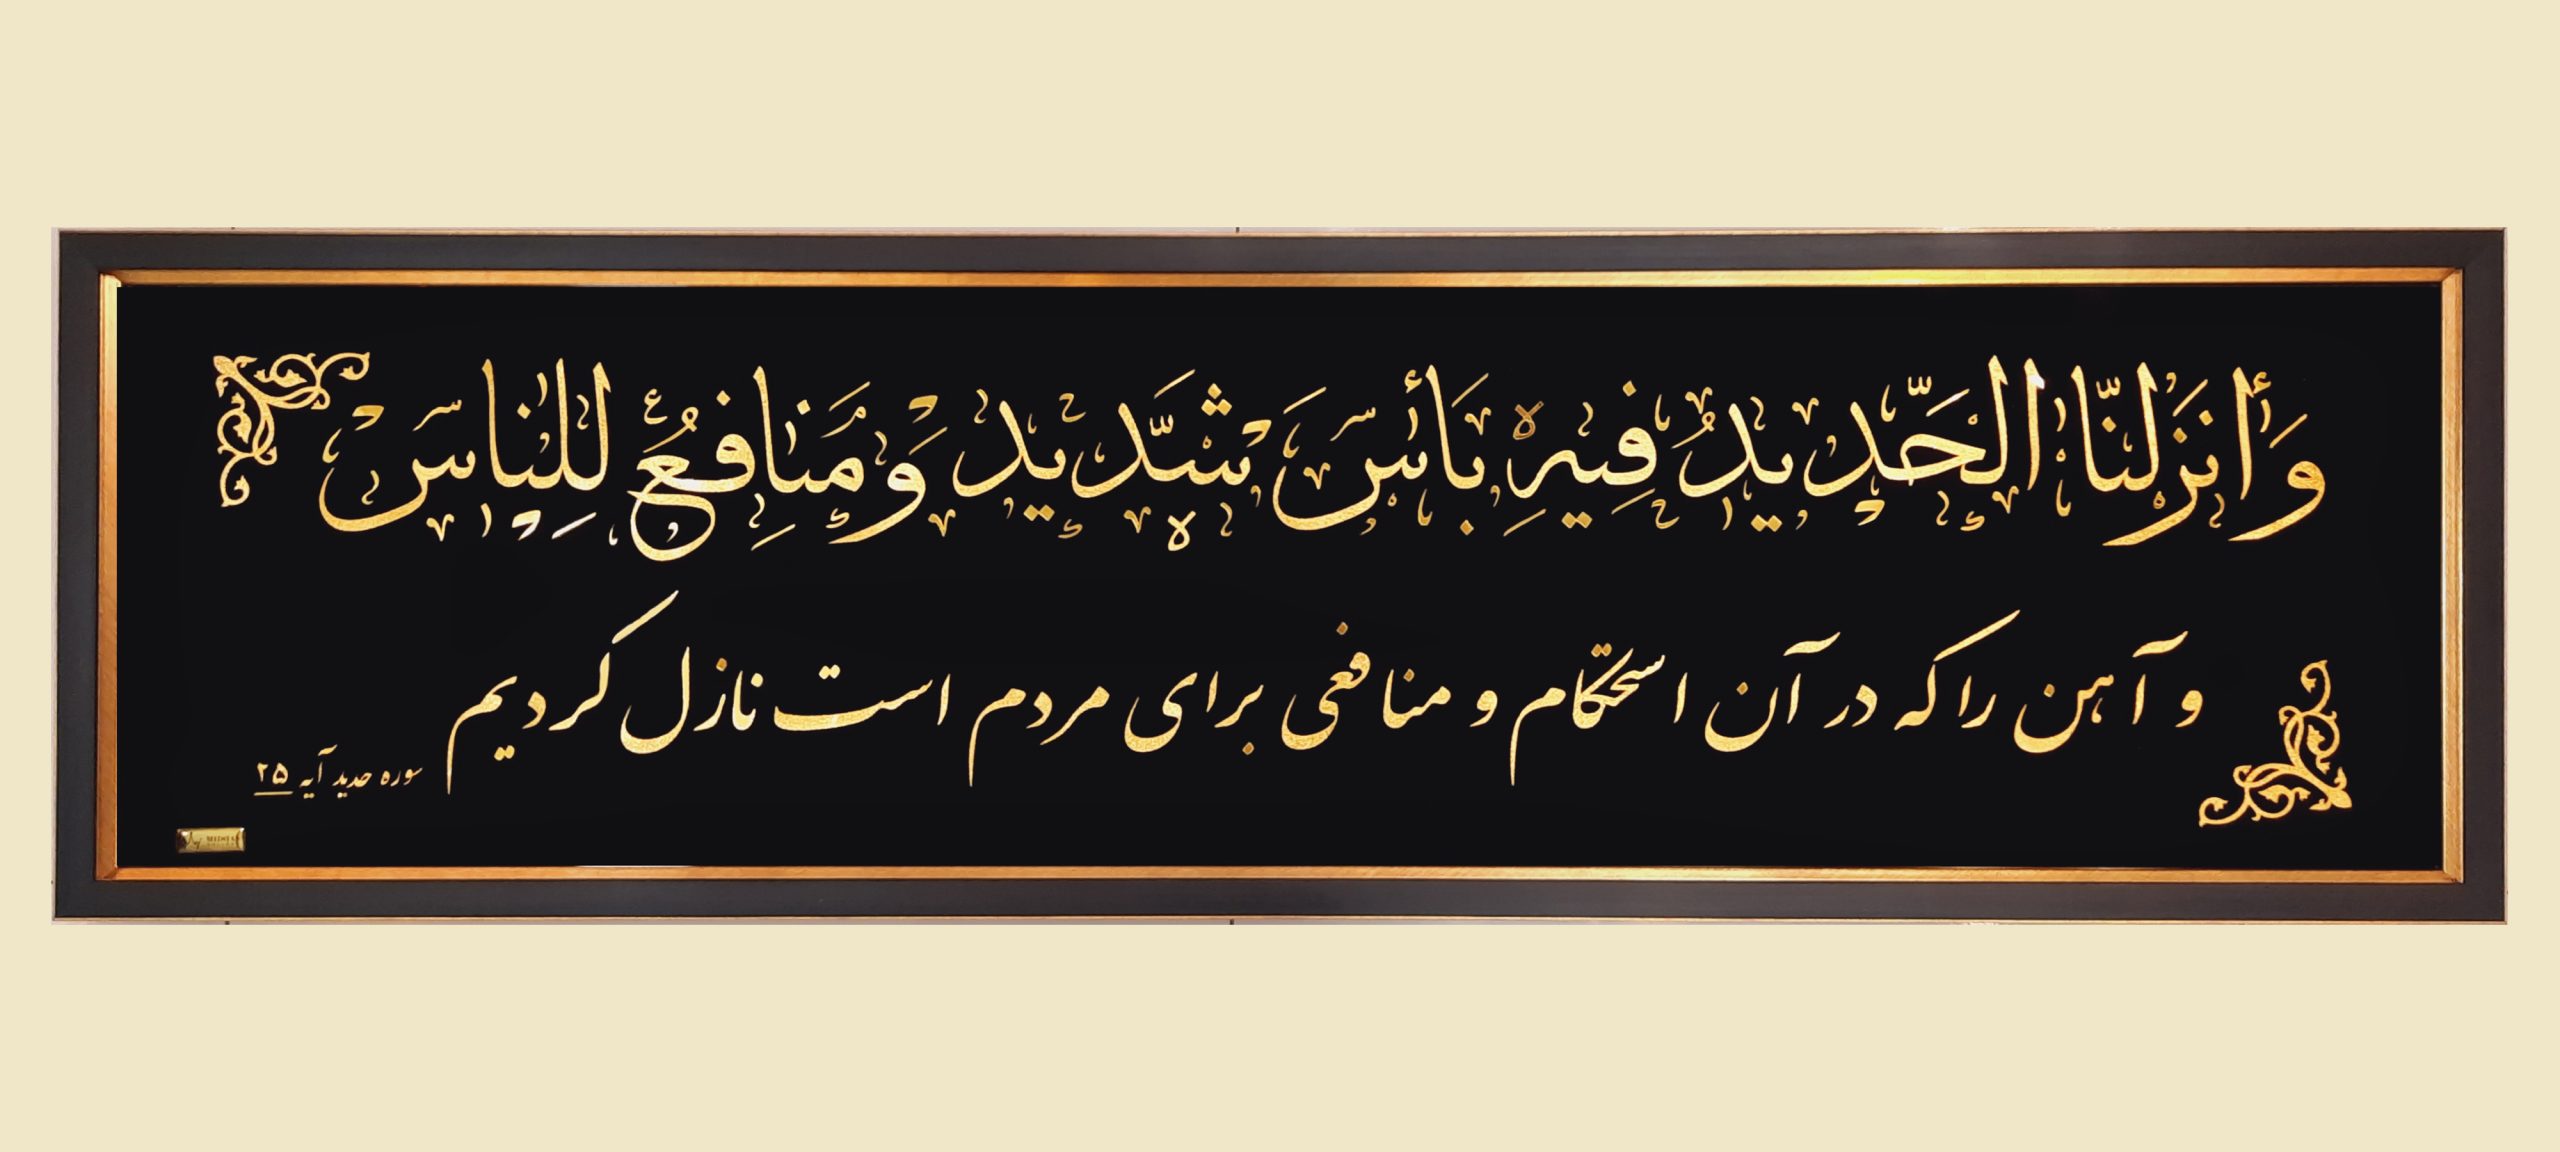 وَأَنزَلنّا الحَّدِيدُ فِيهِ بَأسَ شَّدِيد وَمَنافِعُ لِلِناسَ
و آهن را که در آن استحکام و منافعی برای مردم است نازل کردیم
سوره حدید آیه ۲۵